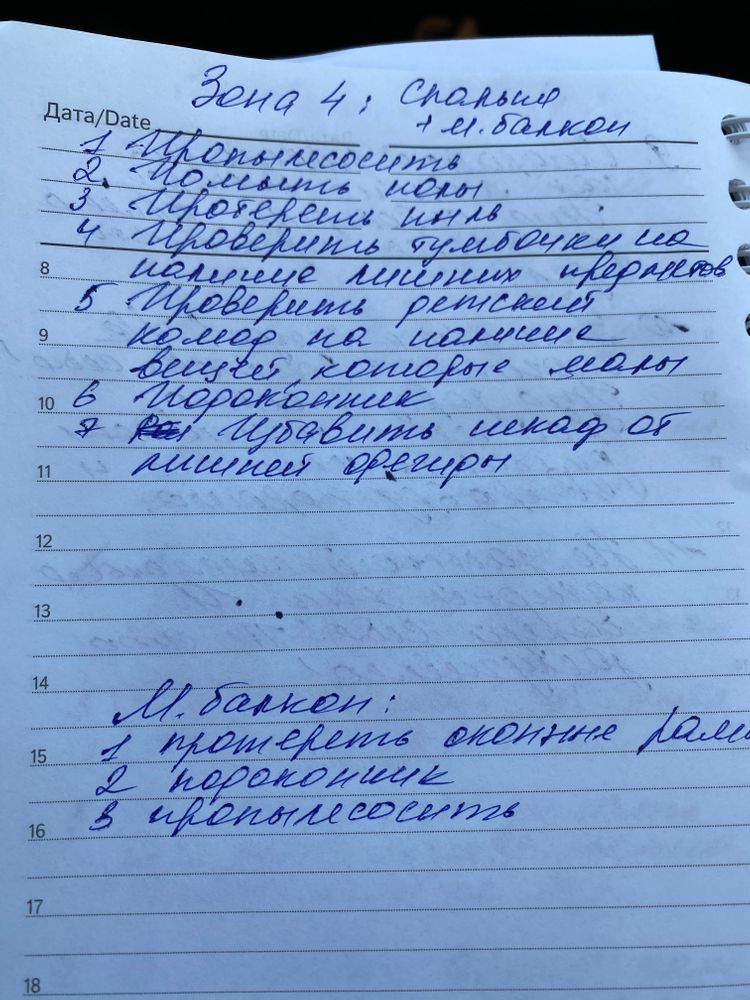 Зона 4: Спальня
Дата/Date + М. балкон
1 Пропылесосить
2. Помыть полы
3 Протереть пыль
4 Проверить тумбочки на
8 наличие лишних предметов
5 Проверить детский
9 комод на наличие
вещей которые малы
10 6 Подоконник
7 Избавить шкаф от
11 лишней одежды
12
13
14
М. балкон:
15 1 протереть оконные рамы
2 подоконник
16 3 пропылесосить
17
18